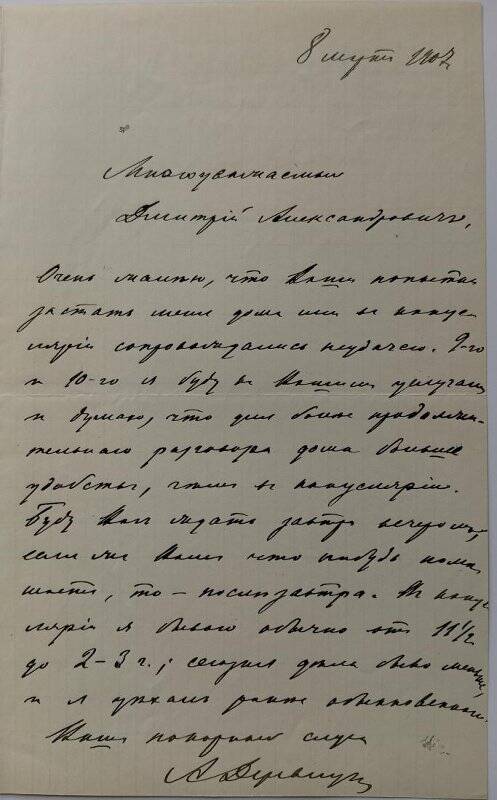 8 марта 1907
Многоуважаемый
Дмитрий Александровичъ,
Очень жалѣю, что Ваши попытки
застать меня дома или въ канце-
лярiи сопровождались неудачею. 9-го
и 10-го я буду къ Вашимъ услугамъ
и думаю, что для болѣе продолжи-
тельнаго разговора дома больше
удобствъ, чѣмъ въ канцелярiи.
Буду Васъ ждать завтра вечеромъ,
если же Вамъ что нибудь помѣ-
шаетъ, то – послѣзавтра. Въ канце-
лярiи я бываю обычно отъ 11 1/2
до 2–3 ч.; сегодня дѣла было меньше,
и я уѣхалъ ранѣе обыкновеннаго.
Вашъ покорный слуга